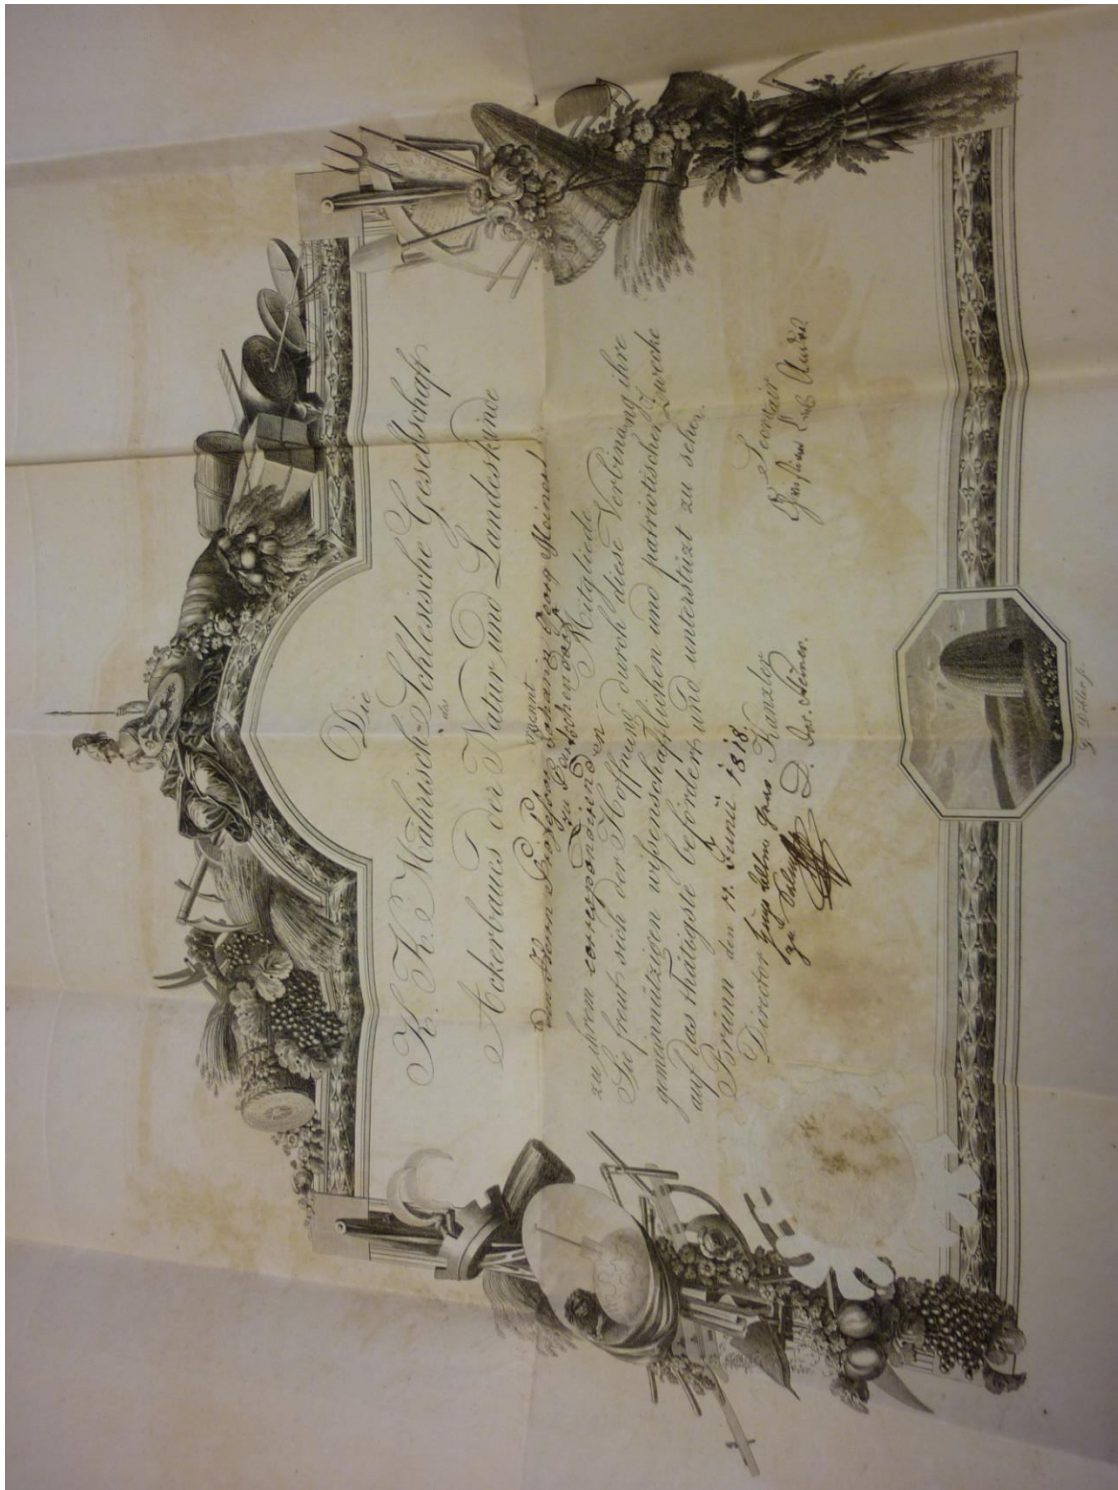 Die
K. K. Mährisch-Schlesische Gesellschaft
des
Ackerbaues der Natur und Landeskunde
ernannt
den Herrn Professor Johann Georg Meinert
zu
zu ihrem correspondirenden Mitgliede
Sie freut sich der Hoffnung durch diese Verbindung ihre
gemeinnützigen wißenschaftlichen und patriotischen Zwecke
auf das thätigste befördert und unterstüzt zu sehen.
Brünn den 11. Junii 1818.
Director Kanzler Secretair
Hugo Altgraf zu Salm Christian Carl André